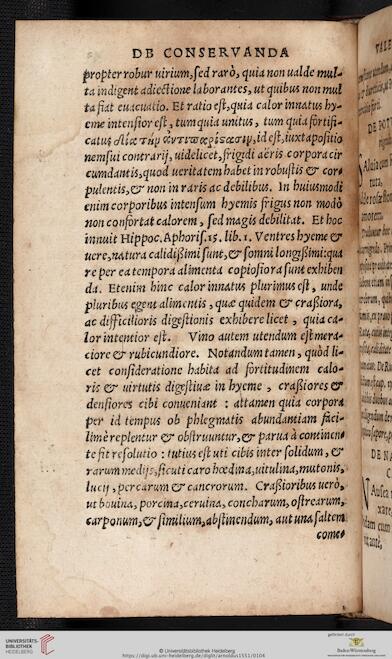 DE CONSERVANDA
propter robur uirium, sed rarò, quia non ualde mul-
ta indigent adiectione laborantes, ut quibus non mul
ta fiat euacuatio. Et ratio est, quia calor innatus hy-
eme intensior est, tum quia unitus, tum quia fortifi-
catus διὰ τὴν ἀντιπαρίστασιν, id est, iuxtapositio
nem sui contrarij, uidelicet, frigidi aëris corpora cir
cumdantis, quod ueritatem habet in robustis & cor-
pulentis, & non in raris ac debilibus. In huiusmodi
enim corporibus intensum hyemis frigus non modò
non confortat calorem, sed magis debilitat. Et hoc
innuit Hippoc. Aphoris. 15. lib. 1. Ventres hyeme &
uere, natura calidißimi sunt, & somni longißimi: qua
re per ea tempora alimenta copiosiora sunt exhiben
da. Etenim hinc calor innatus plurimus est, unde
pluribus egent alimentis, quæ quidem & craßiora,
ac difficilioris digestionis exhibere licet, quia ca-
lor intentior est. Vino autem utendum est mera-
ciore & rubicundiore. Notandum tamen, quòd li-
cet consideratione habita ad fortitudinem calo-
ris & uirtutis digestiuæ in hyeme, craßiores &
densiores cibi conueniant: attamen quia corpora
per id tempus ob phlegmatis abundantiam faci-
limè replentur & obstruuntur, & parua à continen-
te fit resolutio: tutius est uti cibis inter solidum, &
rarum medijs, sicuti caro hœdina, uitulina, mutonis,
lucij, percarum & cancrorum. Craßioribus uerò,
ut bouina, porcina, ceruina, concharum, ostrearum,
carponum, & similium, abstinendum, aut una saltem
come-
UNIVERSITÄTS-
BIBLIOTHEK
HEIDELBERG
https://digi.ub.uni-heidelberg.de/diglit/arnoldus1551/0104
© Universitätsbibliothek Heidelberg
gefördert durch
Baden-Württemberg